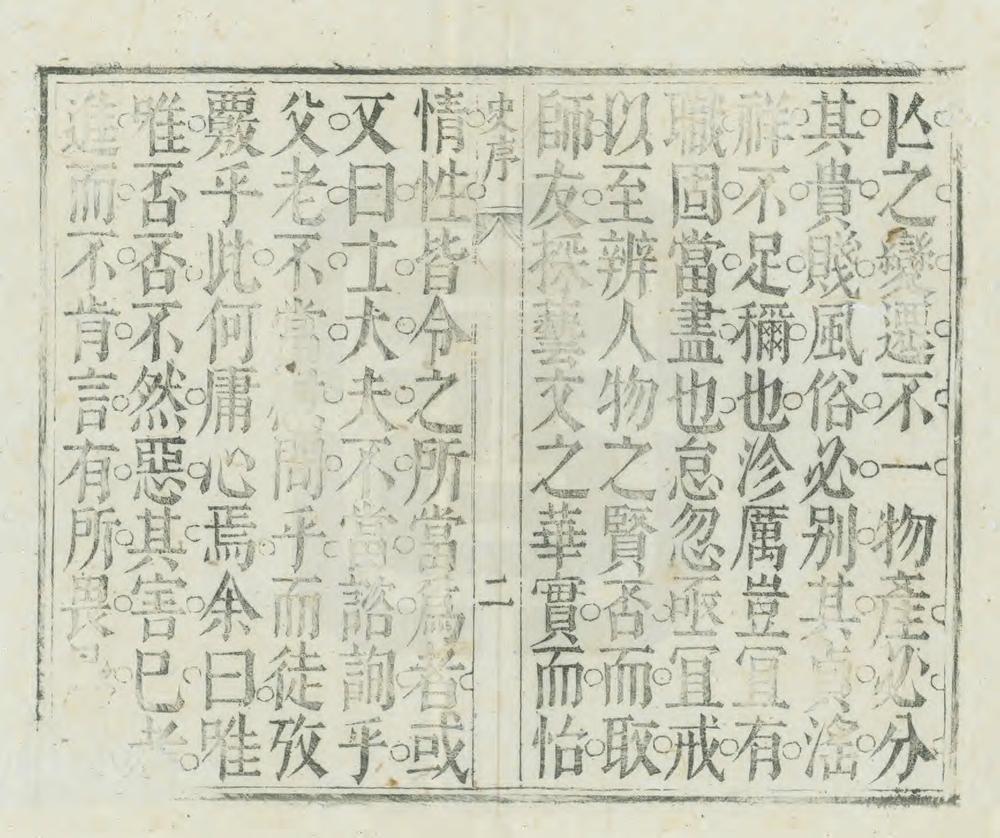 亾之變遷不一物產必分
其貴賤風俗必别其貞滛
祥不足穪也沴厲豈冝有
職固當盡也怠忽亟冝戒
以至辨人物之賢否而取
師友採藝文之華實而怡
史序 二
情性皆令之所當爲者或
又曰士大夫不當諮詢乎
父老不當 問乎而徒攷
覈乎此何庸心焉余曰唯
唯否否不然惡其害巳者
進而不肯言有所畏